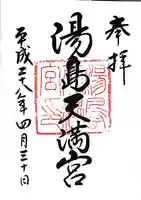 奉拝
湯島天満宮
平成二十八年四月三十日